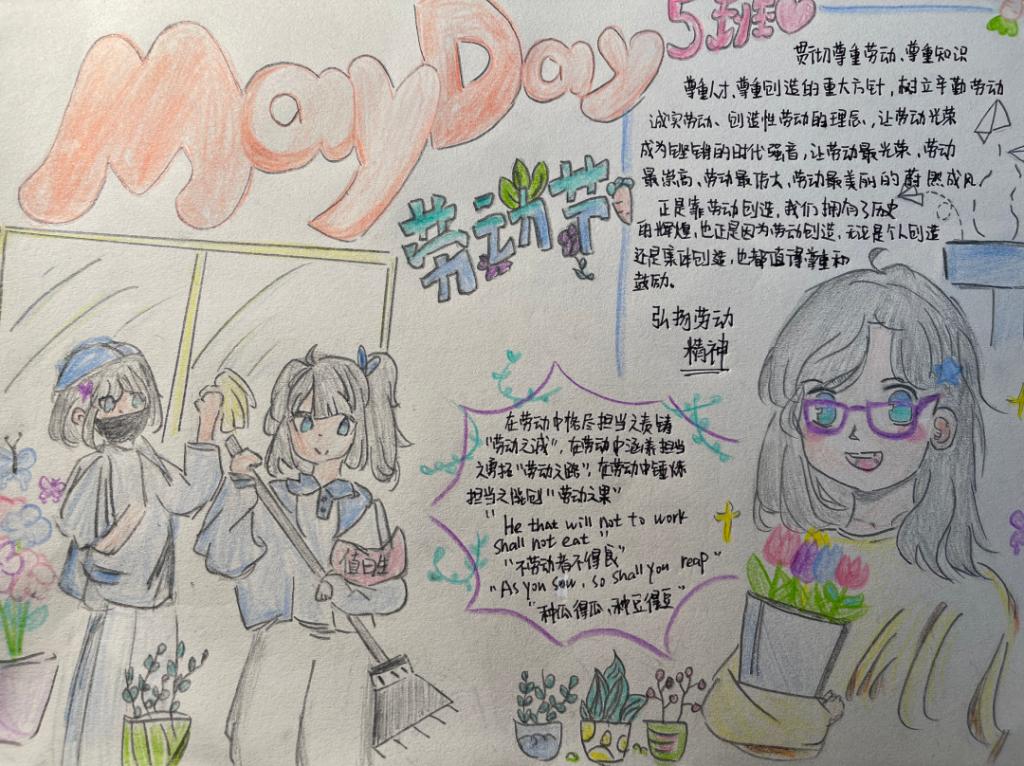 May Day
5班
劳动节
贯彻尊重劳动、尊重知识
尊重人才、尊重创造的重大方针，树立辛勤劳动
诚实劳动、创造性劳动的理念，让劳动光荣
成为铿锵的时代强音，让劳动最光荣、劳动
最崇高、劳动最伟大、劳动最美丽的蔚然成风
正是靠劳动创造，我们拥有了历史
的辉煌，也正是因为劳动创造，无论是个人创造
还是集体创造，也都值得尊重和
鼓励。
弘扬劳动
精神
在劳动中恪尽担当之责铸
"劳动之诚"，在劳动中涵养担当
之勇拓"劳动之路"，在劳动中锤炼
担当之能创"劳动之果"
"He that will not to work
shall not eat"
"不劳动者不得食"
"As you sow, so shall you reap"
"种瓜得瓜，种豆得豆"
值日生